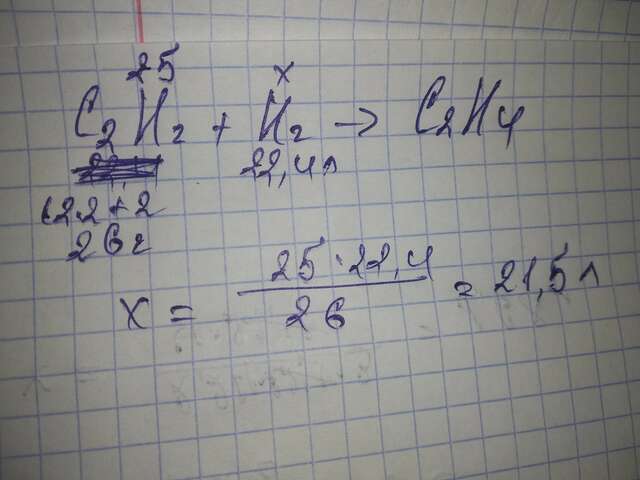 25 x
C2H2 + H2 → C2H4
22,4л
12.2+2
26г
x = 25·22,4 / 26 = 21,5л